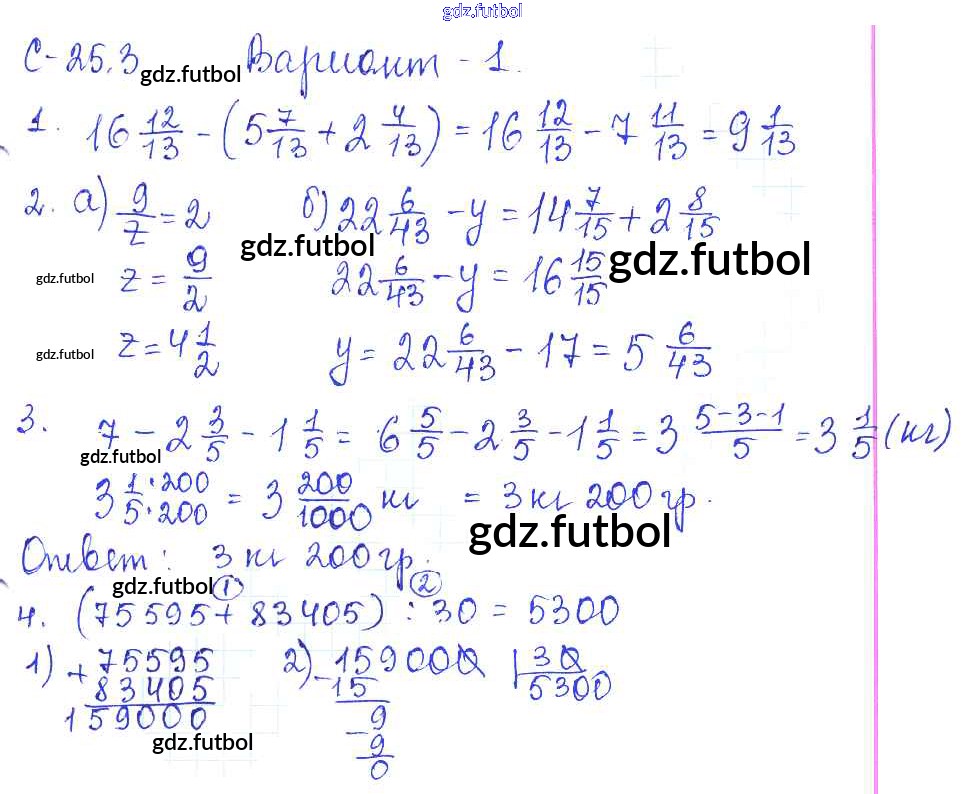 gdz.futbol
С-25.3 gdz.futbol Вариант - 1.
1. 16 12/13 - (5 7/13 + 2 4/13) = 16 12/13 - 7 11/13 = 9 1/13
2. а) 9/z = 2 б) 22 6/43 - y = 14 7/15 + 2 8/15
gdz.futbol gdz.futbol
gdz.futbol z = 9/2 22 6/43 - y = 16 15/15
gdz.futbol z = 4 1/2 y = 22 6/43 - 17 = 5 6/43
3. 7 - 2 3/5 - 1 1/5 = 6 5/5 - 2 3/5 - 1 1/5 = 3 (5-3-1)/5 = 3 1/5 (кг)
gdz.futbol
3 1·200/5·200 = 3 200/1000 кг = 3 кг 200 гр.
gdz.futbol
Ответ: 3 кг 200 гр.
gdz.futbol ① ②
4. (75595 + 83405) : 30 = 5300
1) + 75595 2) - 159000 | 30
83405 15 5300
159000 9
gdz.futbol - 9
0